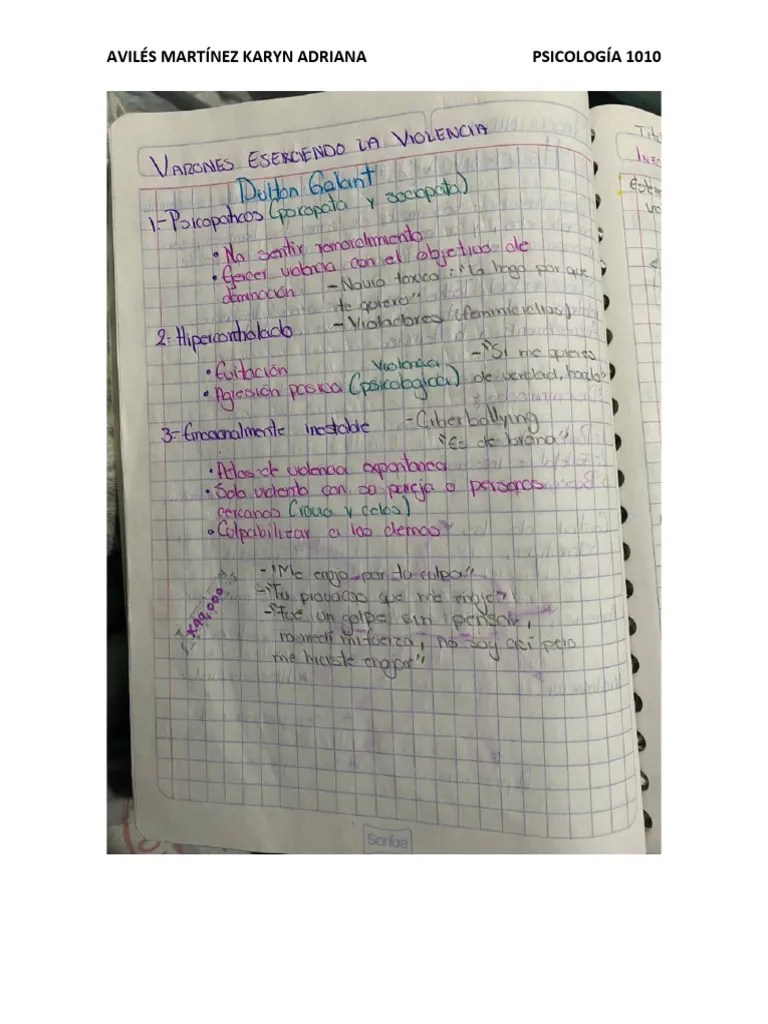 AVILÉS MARTÍNEZ KARYN ADRIANA PSICOLOGÍA 1010
VARONES ESERCIENDO LA VIOLENCIA
Dutton Galant
1.- Psicopaticos (psicopata y sociopata)
• No sentir remordimiento
• Ejercer violencia con el objetivo de
dominación - Novio toxico: "Lo hago por que
te quiero"
2.- Hipercontrolado - Violadores (feminicidios)
• Evitación - "Si me quieres
• Agresión pasiva (psicologica) de verdad, hazlo"
Violencia
3.- Emocionalmente inestable - Ciberbollying
"Es de broma"
• Actos de violencia expontanea
• Solo violento con su pareja o personas
cercanas (rabia y celos)
• Culpabilizar a los demas
- "Me enojo por tu culpa"
- "Tu provocas que me enoje"
- "Fue un golpe sin pensar,
no medí mi fuerza, no soy así pero
me hiciste enojar"
Scribe